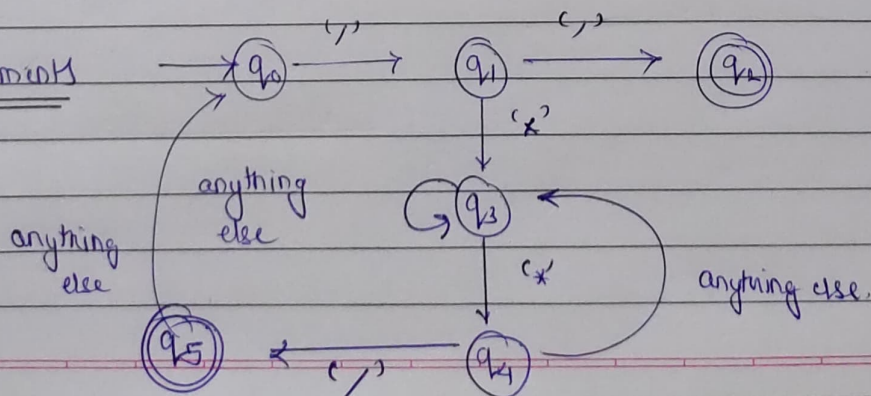 q0 '/' q1 '/' q2
'*'
anything
else
q3
anything
else
'*'
anything else.
q5 '/' q4